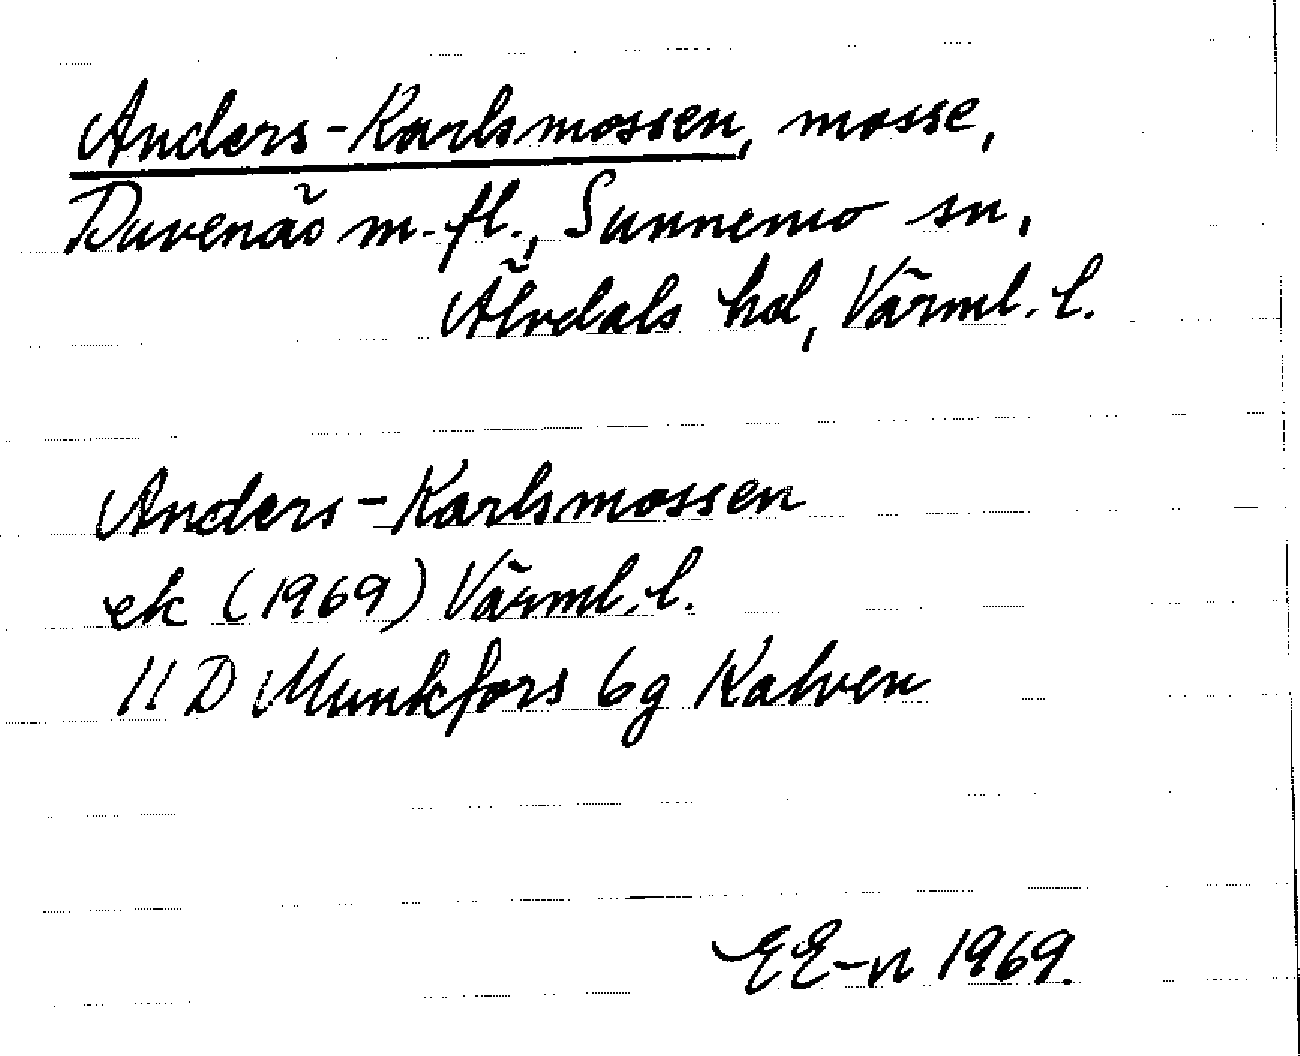 Anders-Karlsmossen, mosse,
Duvenäs m.fl., Sunnemo sn,
Älvdals hd, Värml. l.
Anders-Karlsmossen
ek (1969) Värml. l.
11 D Munkfors 6g Kalven
EE-n 1969.